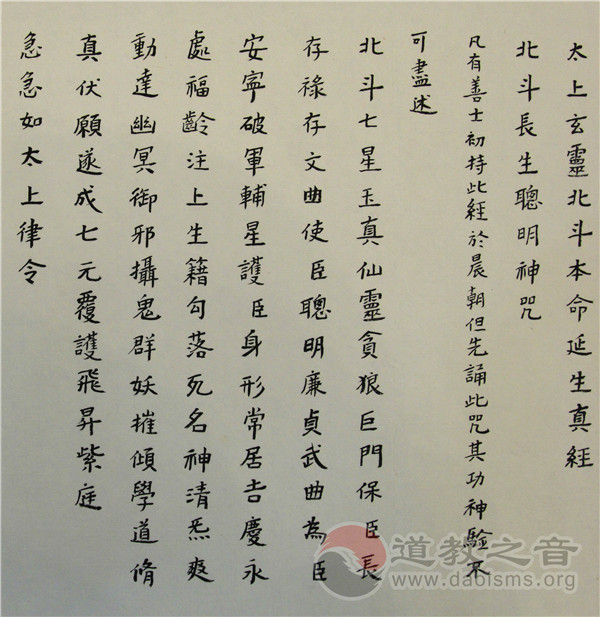 太上玄靈北斗本命延生真經
北斗長生聰明神咒
凡有善士初持此經於晨朝但先誦此咒其功神驗不
可盡述
北斗七星玉真仙靈貪狼巨門保臣長
存祿存文曲使臣聰明廉貞武曲為臣
安寧破軍輔星護臣身形常居吉慶永
處福齡注上生籍勾落死名神清炁爽
動達幽冥御邪攝鬼群妖摧傾學道脩
真伏願遂成七元覆護飛昇紫庭
急急如太上律令
道教之音
www.daoisms.org